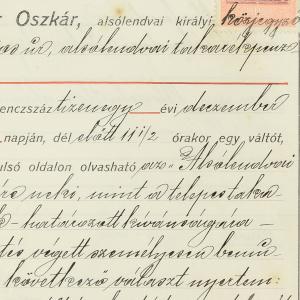 r Oszkár, alsólendvai királyi, közjegyző
úr, alsólendvai takarékpénz
enczszáz tizenegy évi deczember
napján, dél előtt 11 1/2 órakor egy váltót,
ulsó oldalon olvasható az "Alsólendvai
neki, mint a telepes taka
határozott kivánságára
tés végett személyesen bemu
következő választ nyertem: